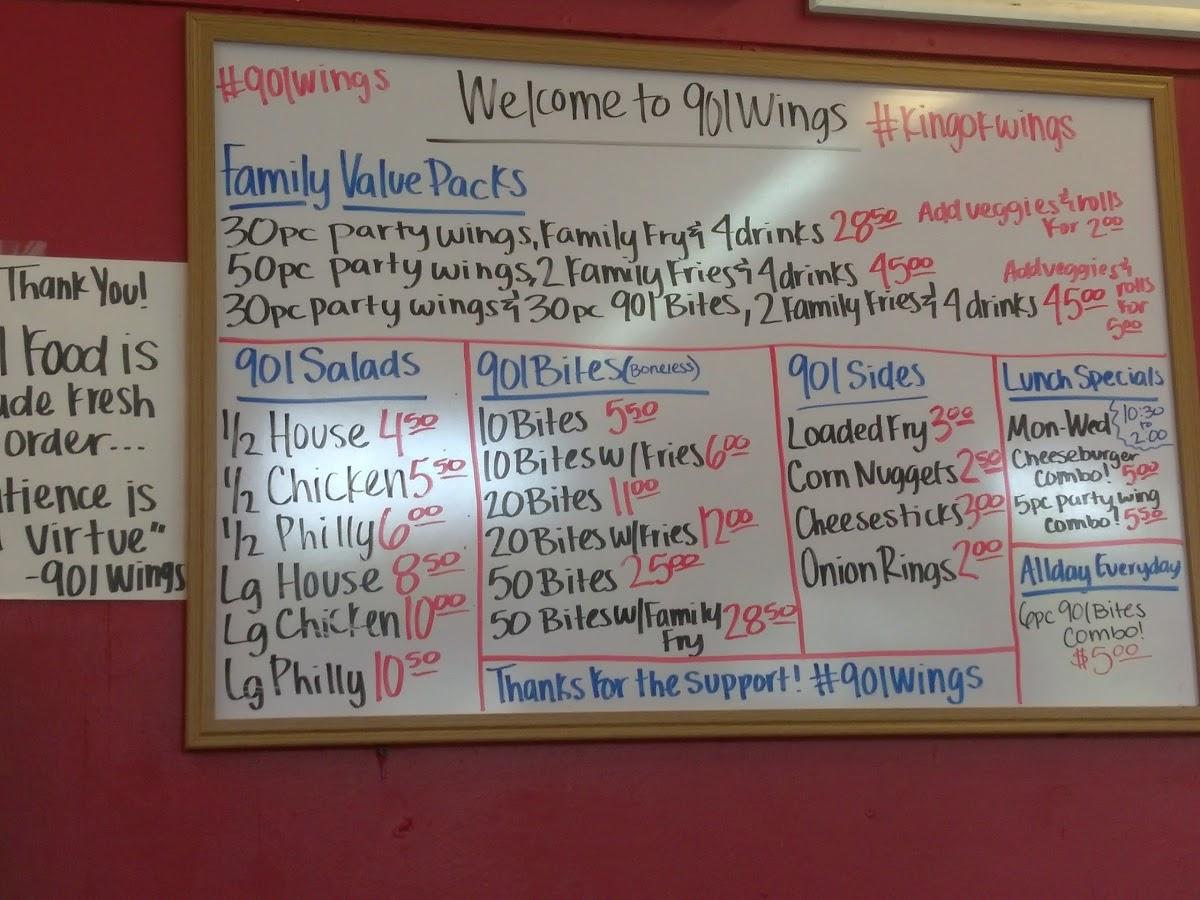 #901wings
Welcome to 901Wings
#Kingofwings
Family Value Packs
30pc party wings, Family Fry & 4 drinks 28.50 Add veggies & rolls
For 2.00
50pc party wings, 2 Family Fries & 4 drinks 45.00
30pc party wings & 30pc 901 Bites, 2 Family Fries & 4 drinks 45.00
Add veggies &
rolls
for
5.00
901 Salads
1/2 House 4.50
1/2 Chicken 5.50
1/2 Philly 6.00
Lg House 8.50
Lg Chicken 10.00
Lg Philly 10.50
901 Bites (Boneless)
10 Bites 5.50
10 Bites w/Fries 6.00
20 Bites 11.00
20 Bites w/Fries 12.00
50 Bites 25.00
50 Bites w/Family 28.50
Fry
901 Sides
Loaded Fry 3.00
Corn Nuggets 2.50
Cheesesticks 3.00
Onion Rings 2.00
Lunch Specials
Mon-Wed 10:30
to
2:00
Cheeseburger
combo! 5.00
5pc party wing
combo! 5.50
All day Everyday
6pc 901 Bites
Combo!
$5.00
Thanks for the support! #901wings
Thank You!
Food is
fresh
order...
is
Virtue"
-901 Wings